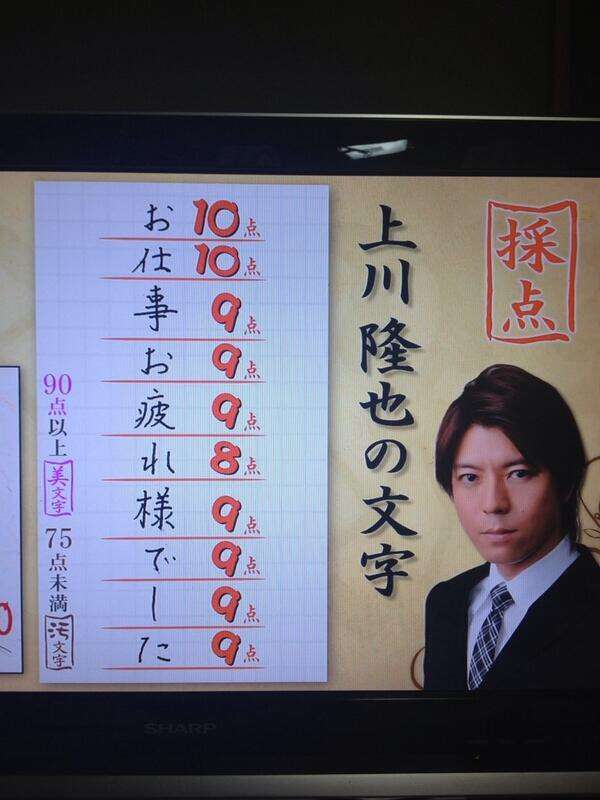 採点
上川隆也の文字
お 10点
仕 10点
事 9点
お 9点
疲 9点
れ 8点
様 9点
で 9点
し 9点
た 9点
90点以上 美文字
75点未満 汚文字
SHARP